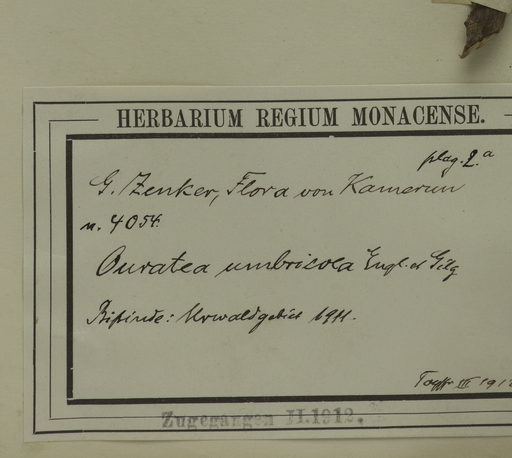 HERBARIUM REGIUM MONACENSE.
plag. 2.a
G. Zenker, Flora von Kamerun
n. 4054.
Ouratea umbricola Engl. et Gilg
Bipinde: Urwaldgebiet 1911.
III 191
Zugegangen II.1912.